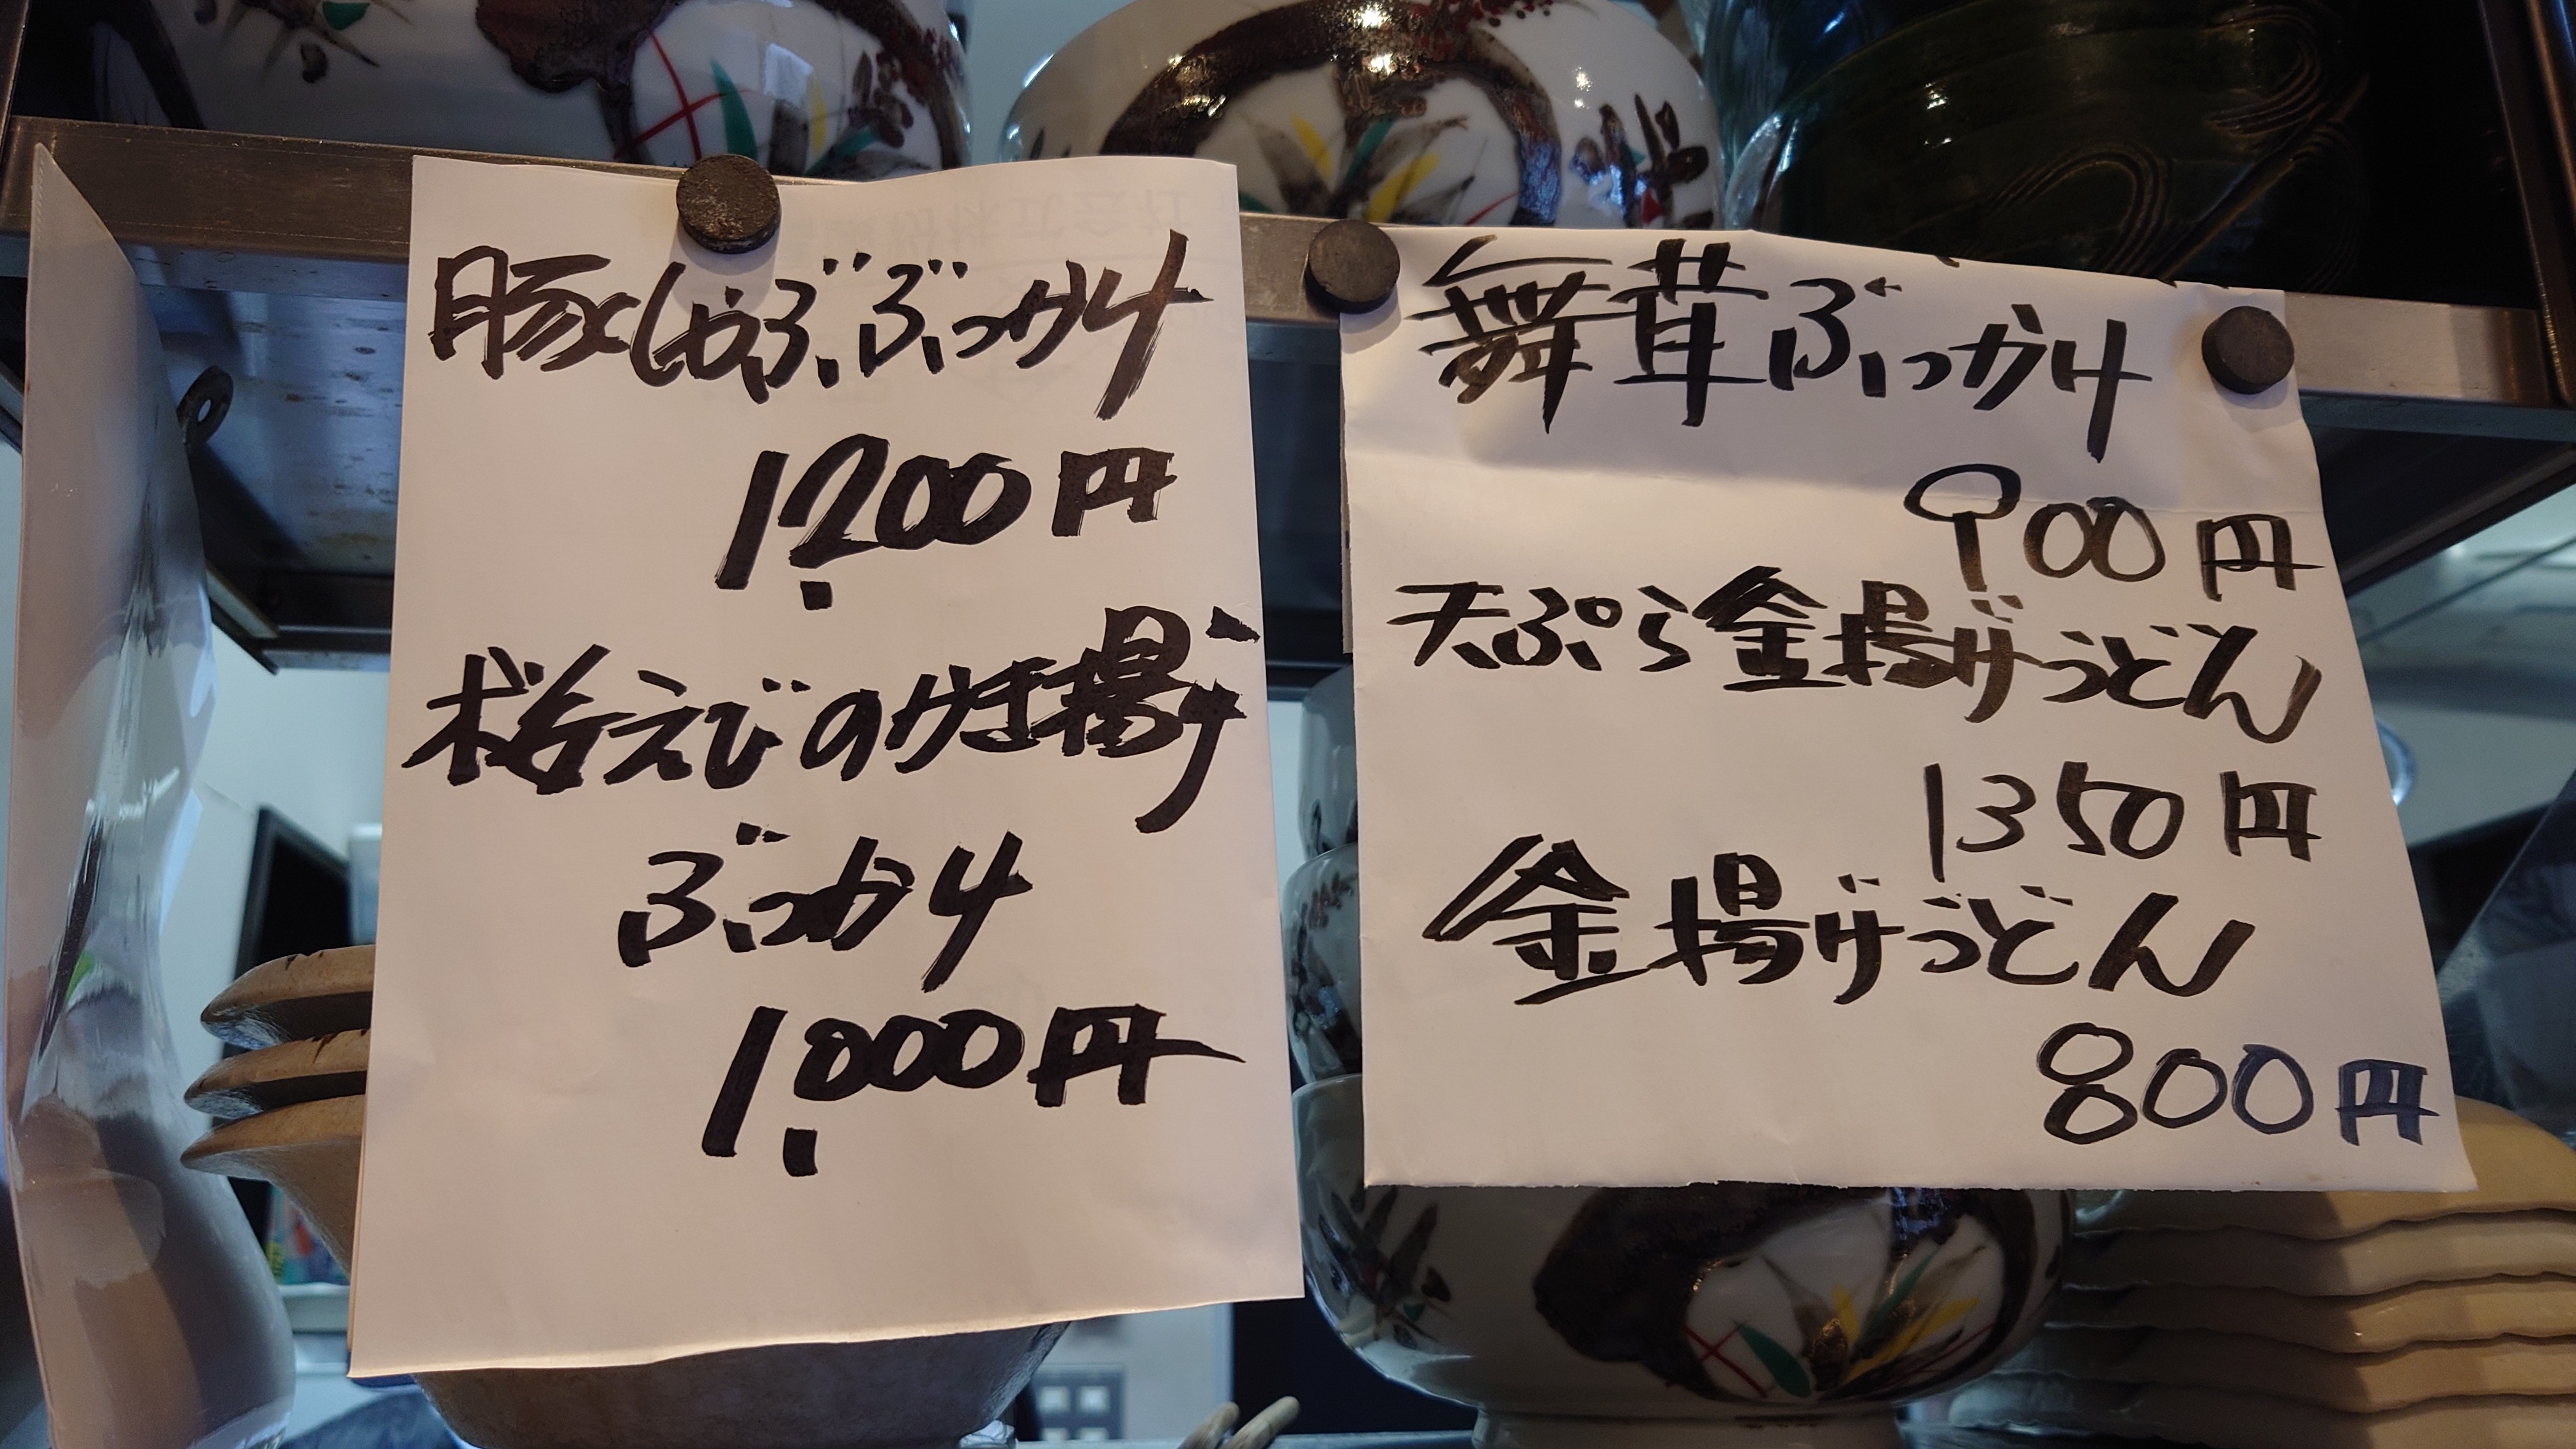 豚しゃぶぶっかけ
1,200円
桜えびのかき揚げ
ぶっかけ
1,000円
舞茸ぶっかけ
900円
天ぷら釜揚げうどん
1350円
釜揚げうどん
800円